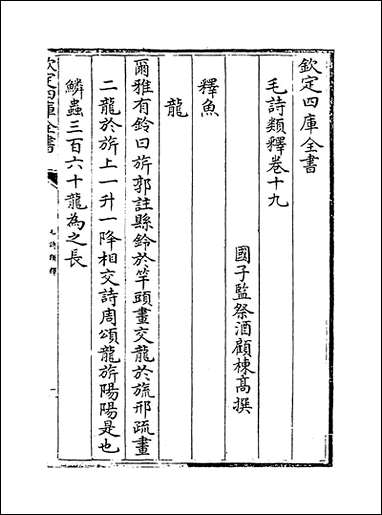 欽定四庫全書
毛詩類釋卷十九
國子監祭酒顧棟高撰
釋魚
龍
爾雅有鈴曰旂郭註縣鈴於竿頭畫交龍於旒邢疏畫
二龍於旂上一升一降相交詩周頌龍旂陽陽是也
鱗蟲三百六十龍為之長
欽定四庫全書
毛詩類釋
一